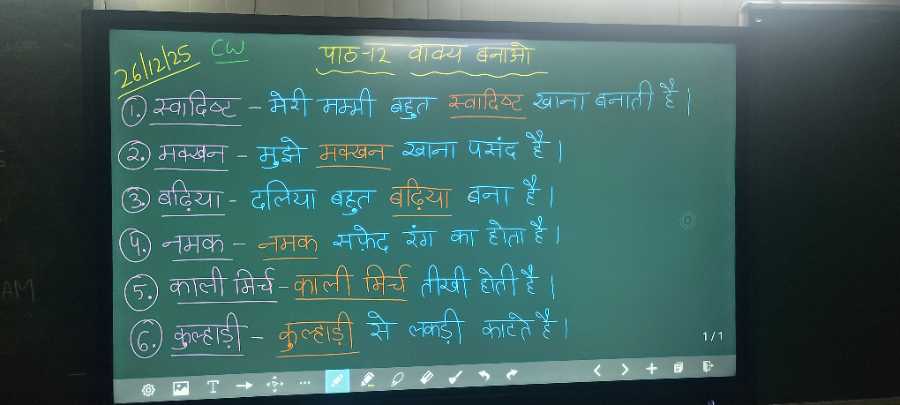 26/12/25 CW पाठ-12 वाक्य बनाओ
1. स्वादिष्ट - मेरी मम्मी बहुत स्वादिष्ट खाना बनाती है।
2. मक्खन - मुझे मक्खन खाना पसंद है।
3. बढ़िया - दलिया बहुत बढ़िया बना है।
4. नमक - नमक सफ़ेद रंग का होता है।
5. काली मिर्च - काली मिर्च तीखी होती है।
6. कुल्हाड़ी - कुल्हाड़ी से लकड़ी काटते है।
1/1
AM